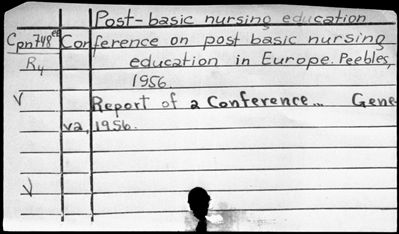 Post-basic nursing education
Cpn748ee Conference on post basic nursing
R4 education in Europe. Peebles,
1956.
V Report of a Conference... Gene
va, 1956.
V